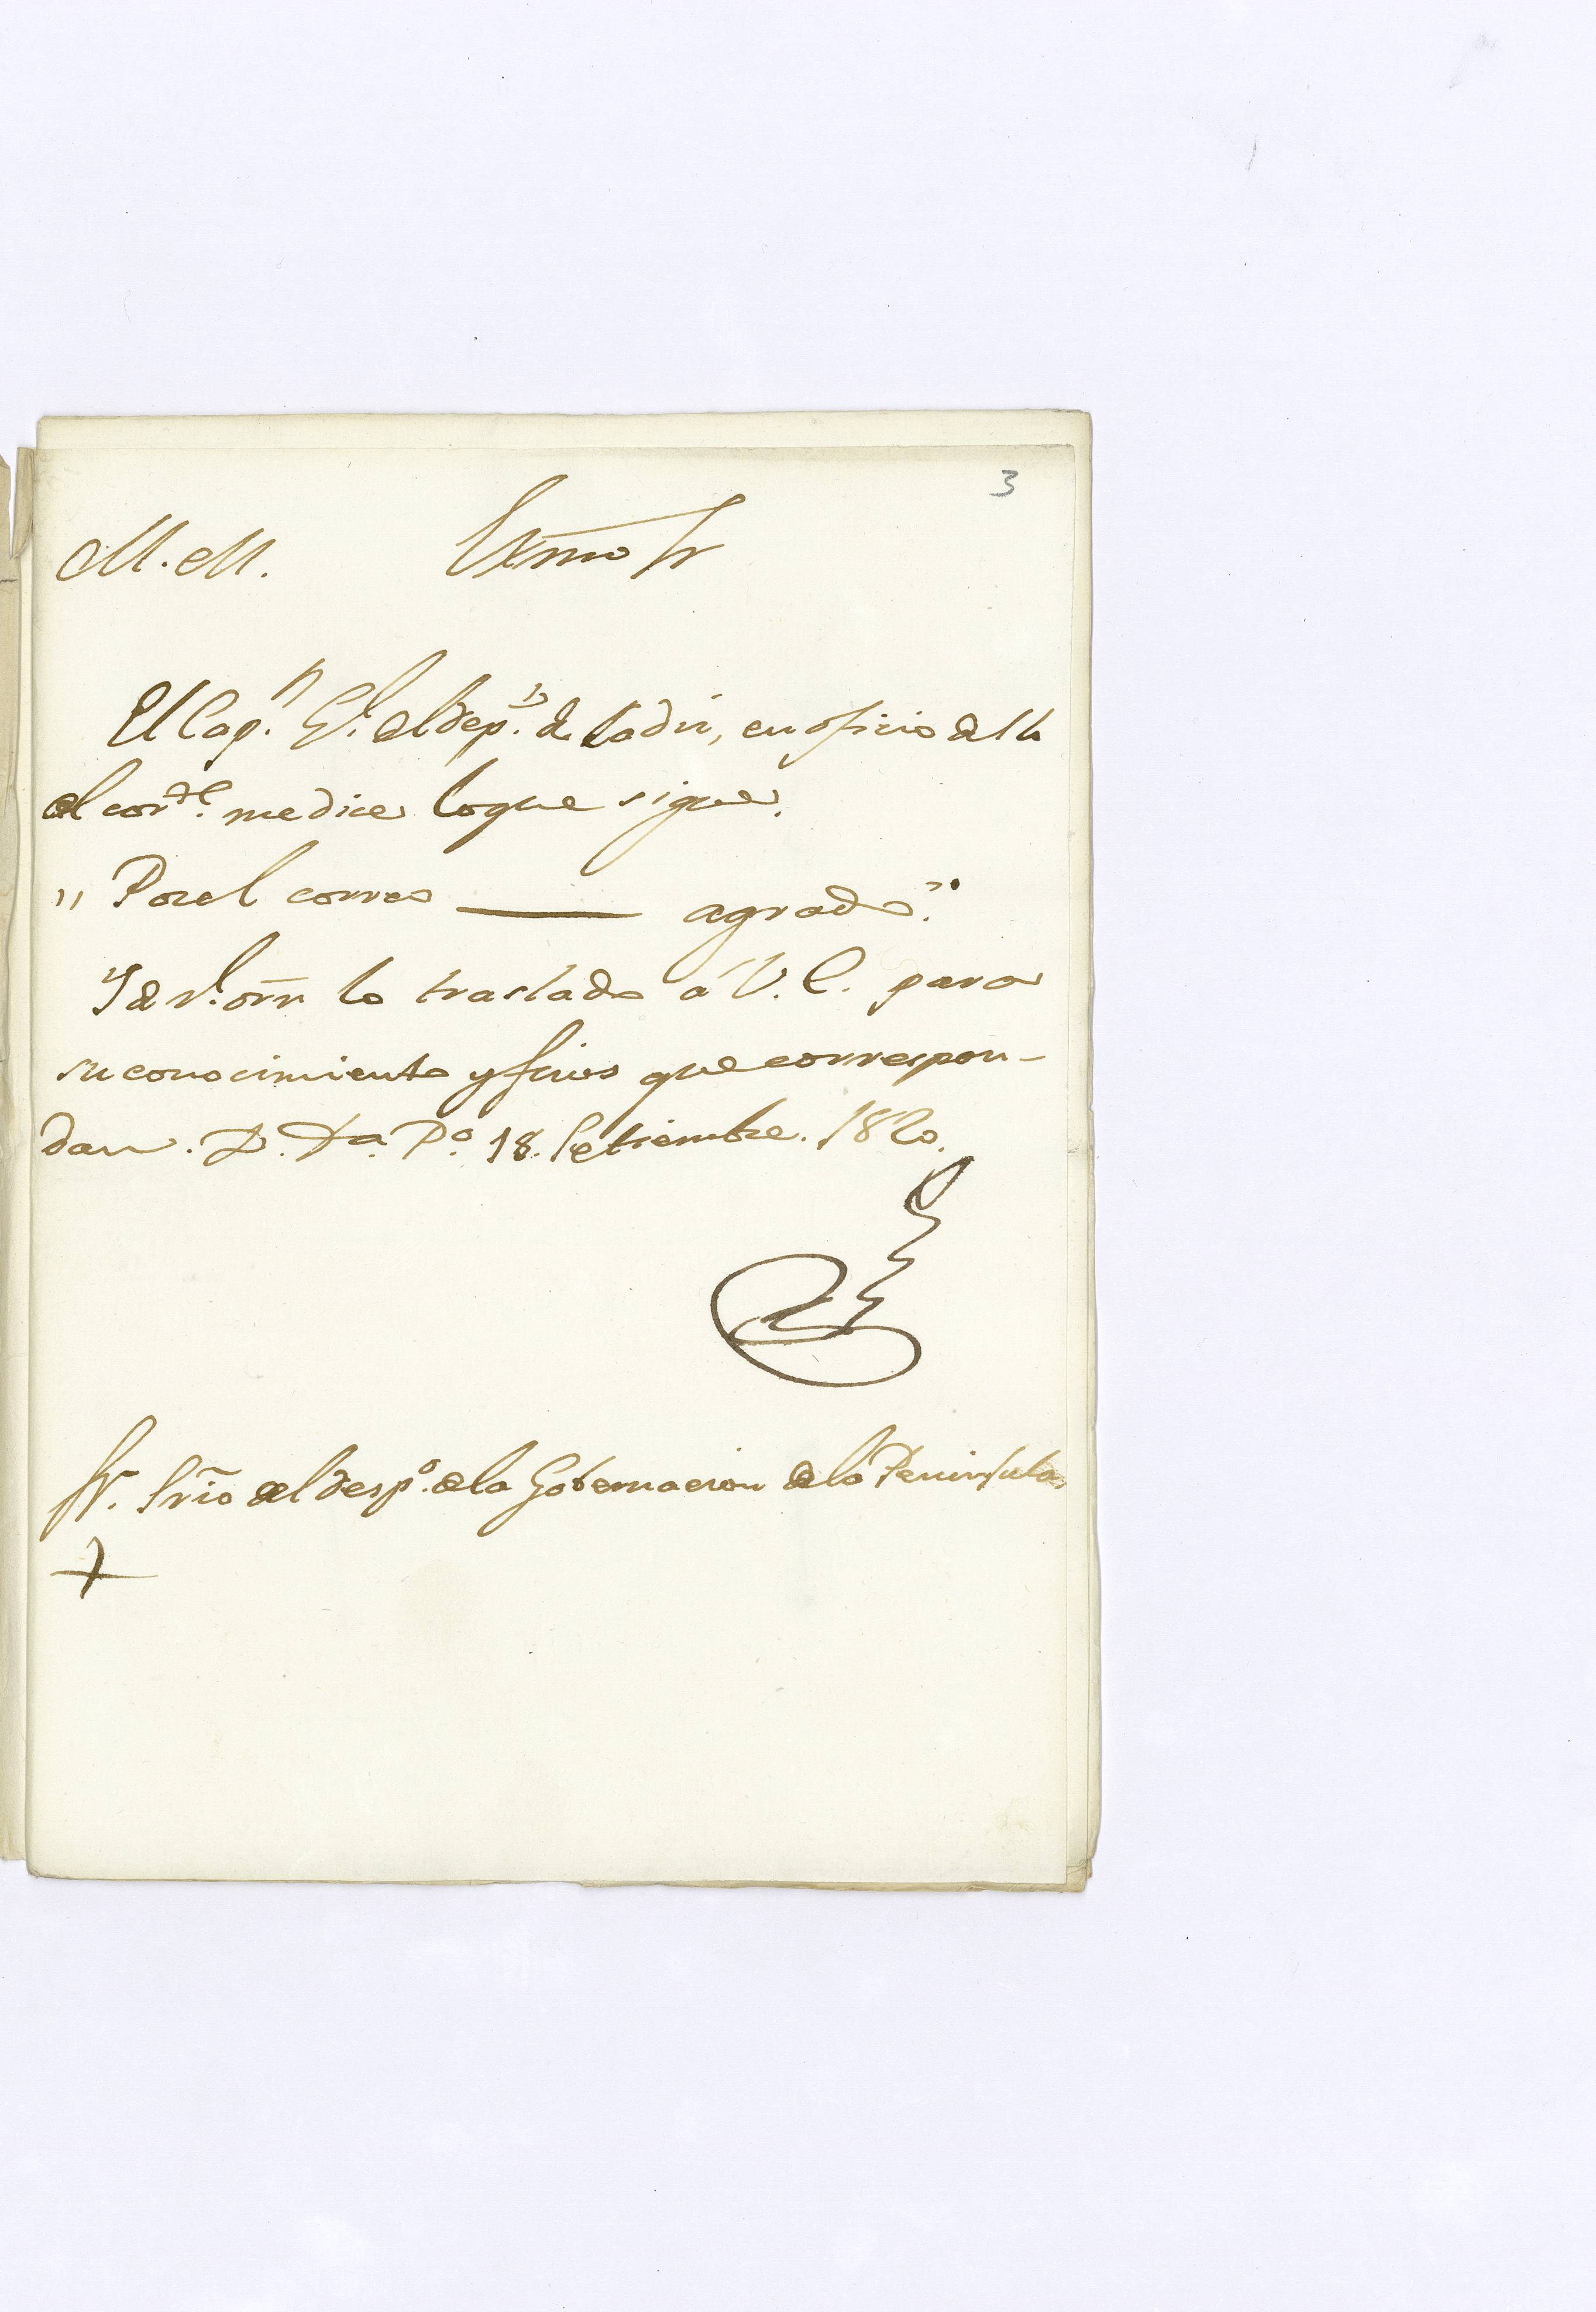 3
M. M. Exmo Sr
El Cap.n Gl. del dep.to de Cadiz, en oficio de 1
del corr.te me dice lo que sigue.
" Por el correo —— agrado."
Y de rl. orn lo traslado á V. E. para
su conocimiento y fines que correspon-
dan. D. Ds. a. Pa.º 18. Setiembre. 1820.
Sr. Srio del desp.o de la Gobernacion de la Peninsula